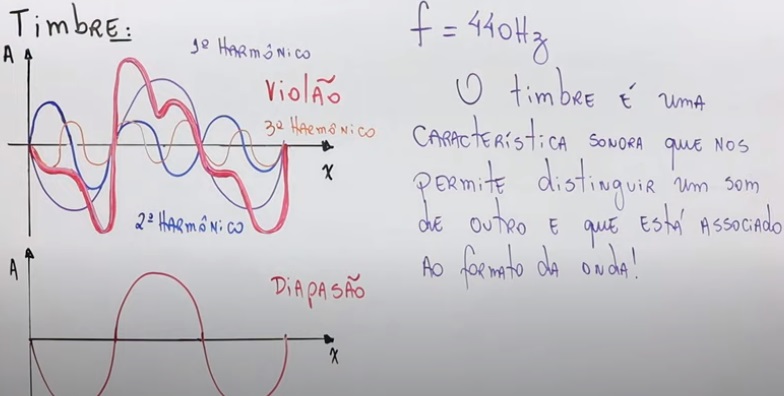 Timbre:
A
1º Harmônico
Violão
3º Harmônico
X
2º Harmônico
A
Diapasão
X
f = 440Hz
O timbre é uma
característica sonora que nos
permite distinguir um som
de outro e que está associado
ao formato da onda!